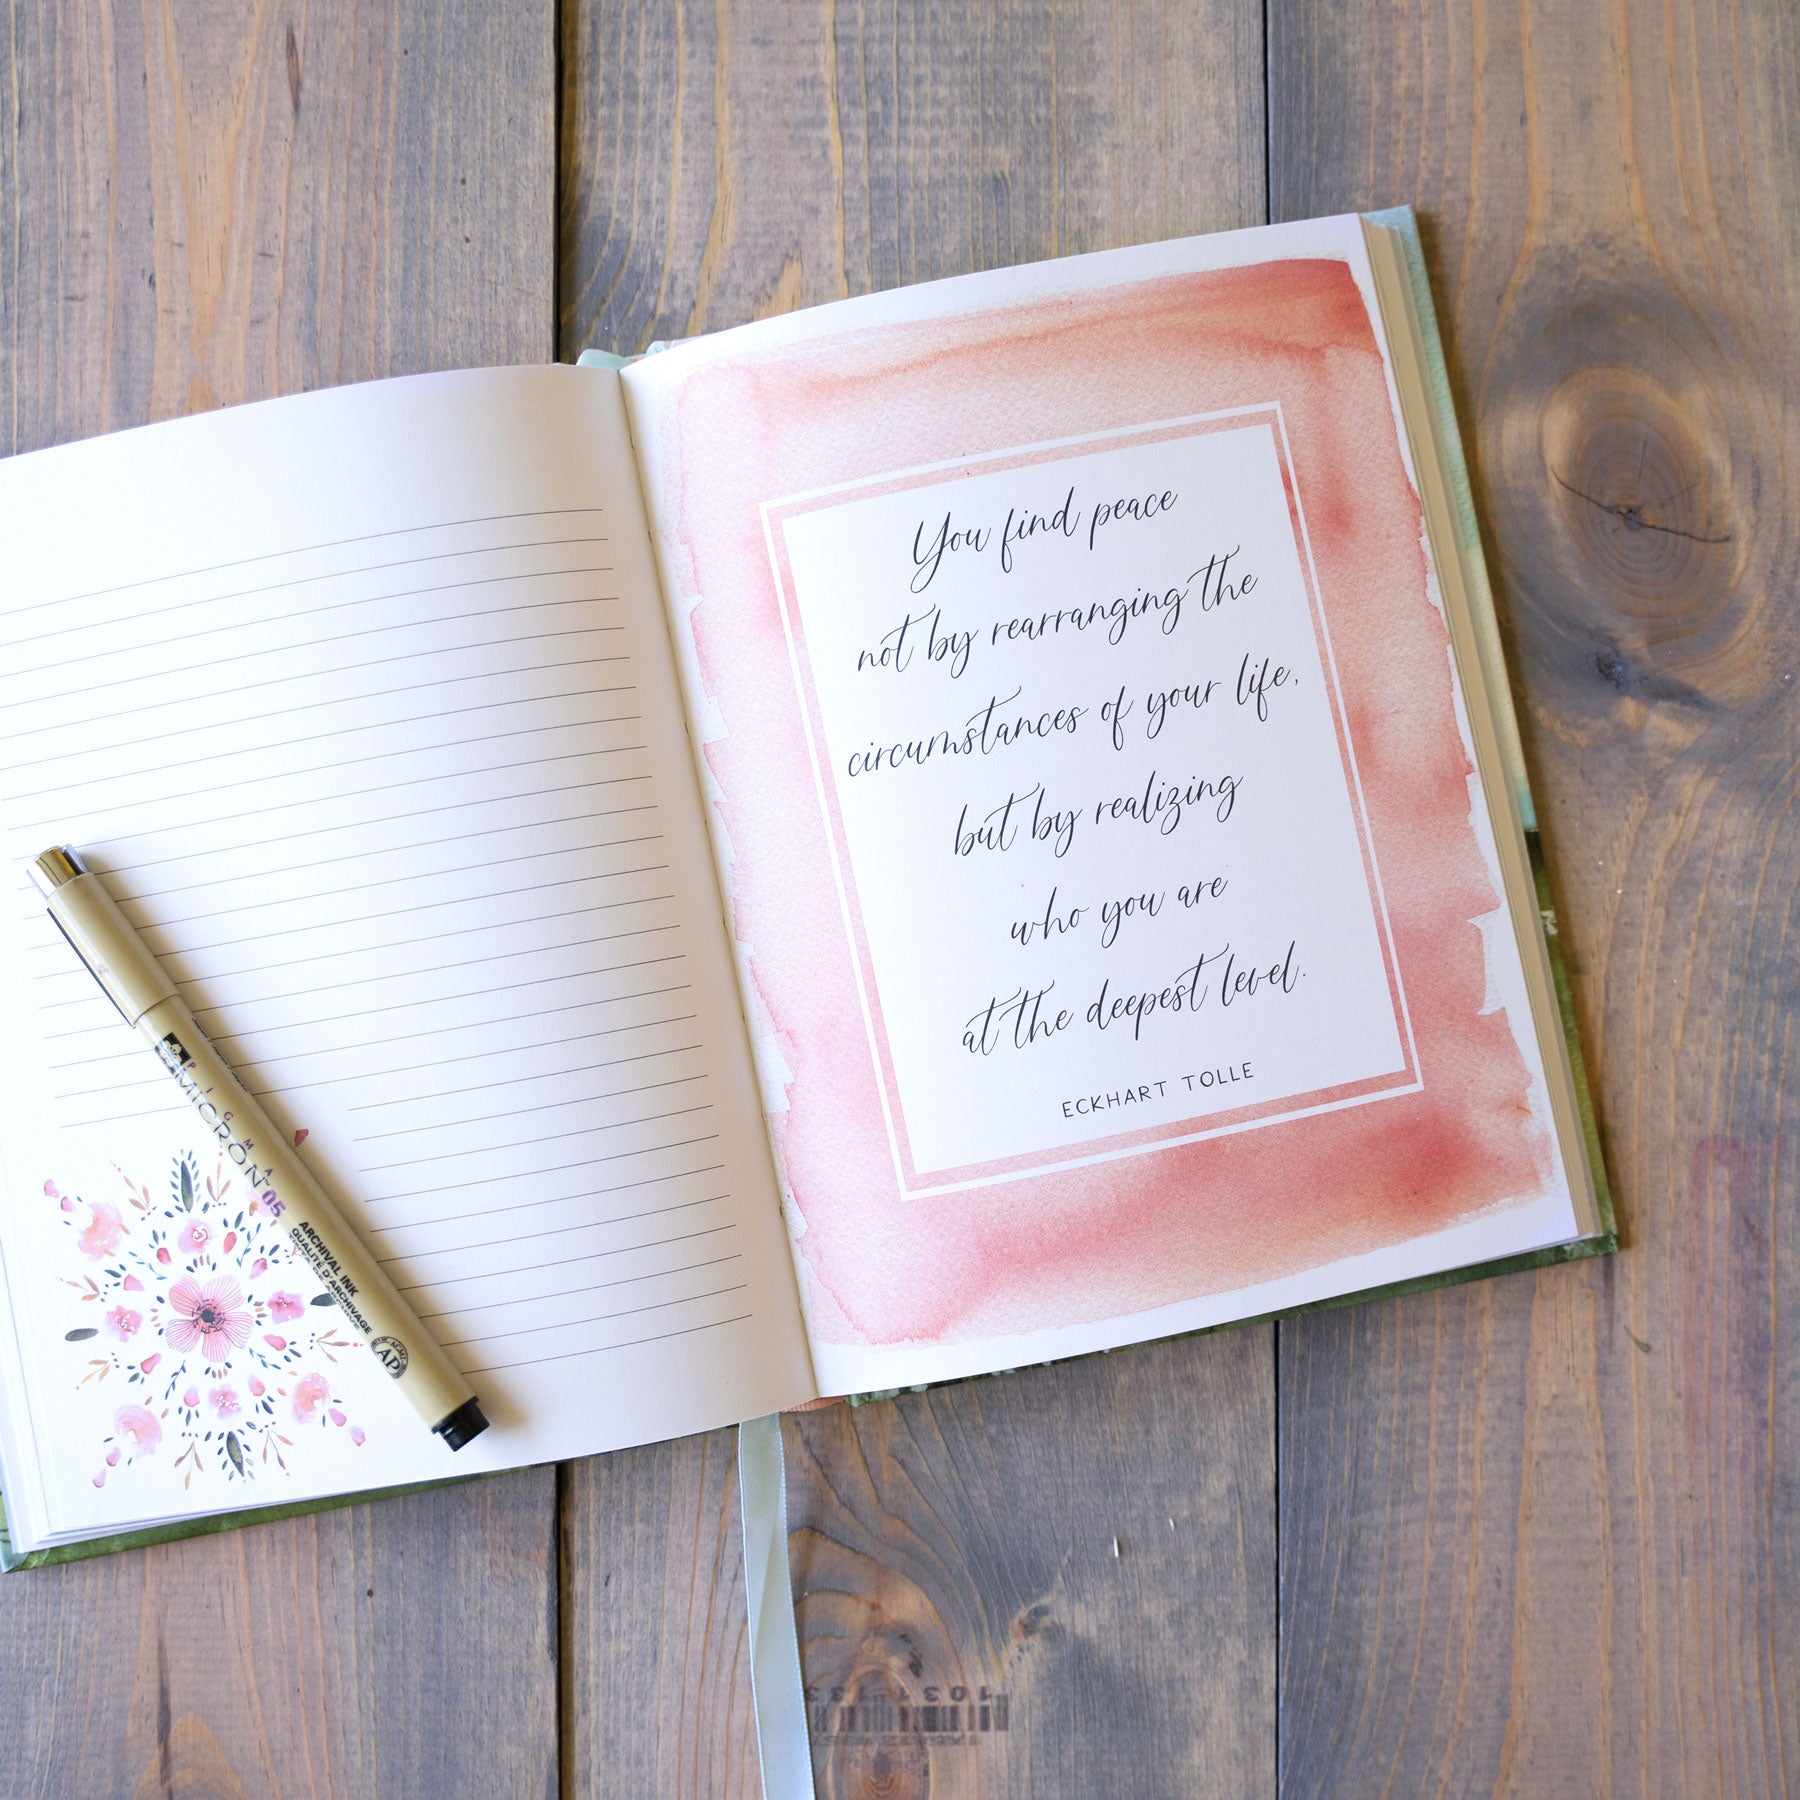 You find peace
not by rearranging the
circumstances of your life,
but by realizing
who you are
at the deepest level.
ECKHART TOLLE
PIGMA
MICRON 05
ARCHIVAL INK
QUALITÉ D'ARCHIVAGE
AP